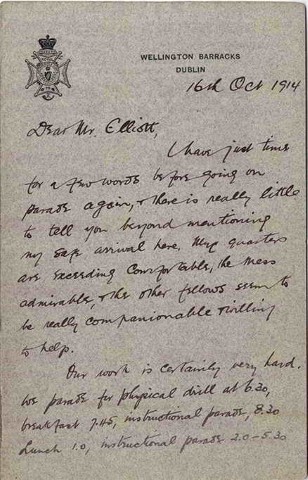 WELLINGTON BARRACKS
DUBLIN
16th Oct 1914
Dear Mr. Elliott,
I have just time
for a few words before going on
parade again, & there is really little
to tell you beyond mentioning
my safe arrival here. My quarters
are exceeding comfortable, the mess
admirable, & the other fellows seem to
be really companionable & willing
to help.
Our work is certainly very hard.
We parade for physical drill at 6.30,
breakfast 7.45, instructional parade, 8.30
Lunch 1.0, instructional parade 2.0-5.30